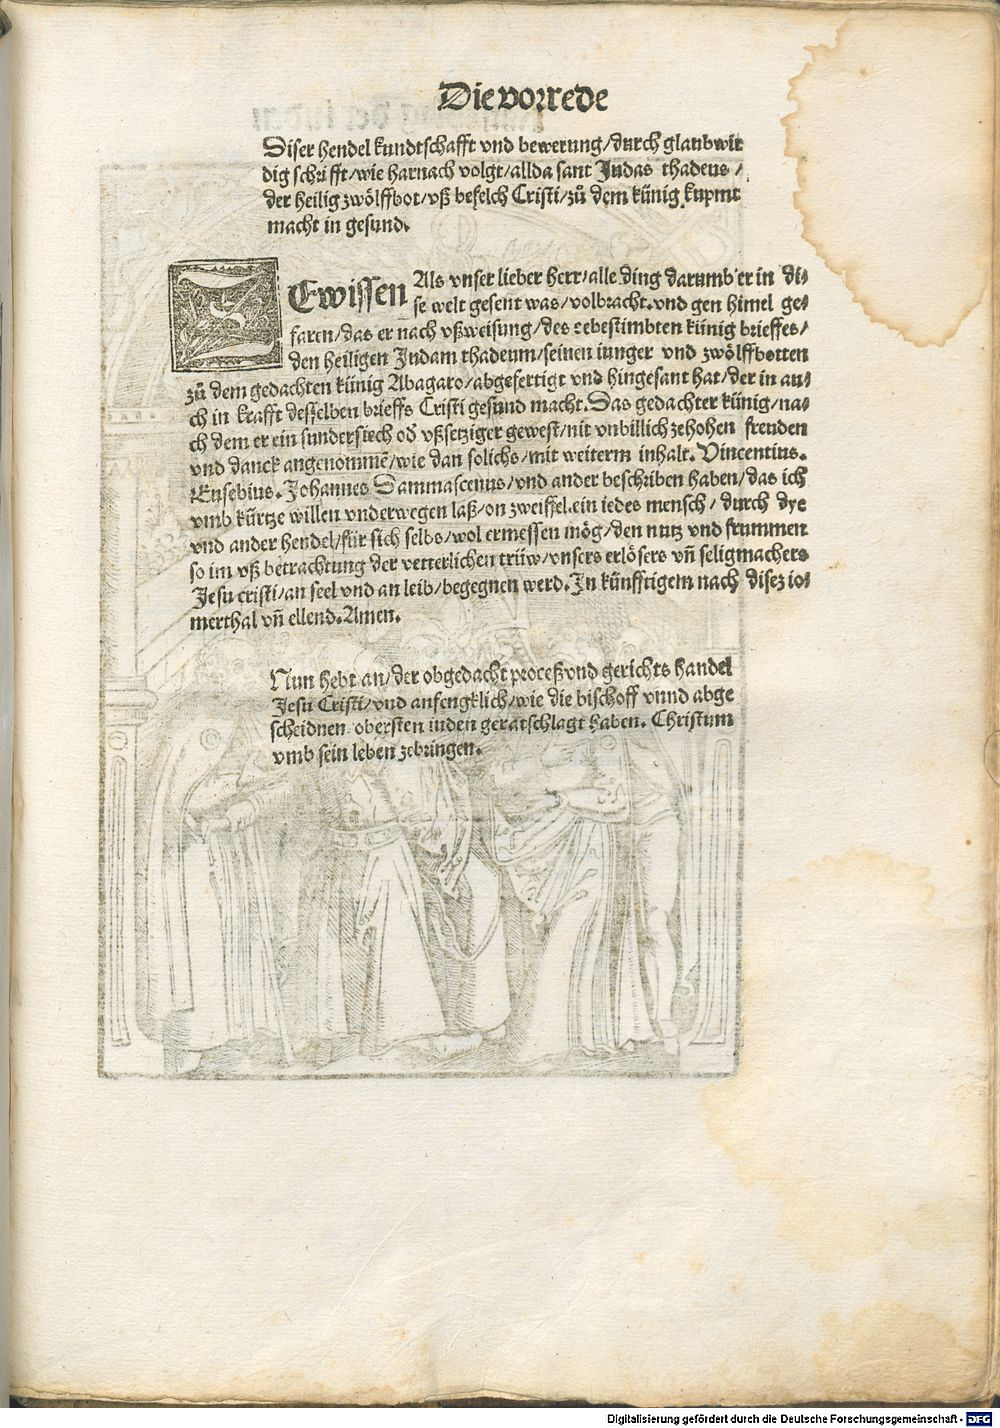 Die vorrede
Diser hendel kundtschafft vnd bewerung/durch glaubwir
dig schrifft/wie harnach volgt/allda sant Judas thadeus/
der heilig zwölffbot/vß befelch Cristi/zů dem künig kupmt
macht in gesund.
Als vnser lieber herr/alle ding darumb er in di⸗
ZEwissen se welt gesent was/volbracht.vnd gen himel ge⸗
faren/das er nach vßweisung/des eebestimbten künig brieffes/
den heiligen Judam thadeum/seinen iunger vnd zwölffbotten
zů dem gedachten künig Abagaro/abgefertigt vnd hingesant hat/der in au⸗
ch in krafft desselben brieffs Cristi gesund macht.Das gedachter künig/na⸗
ch dem er ein sundersiech od̓ vßsetziger gewest/nit vnbillich zehohen freuden
vnd danck angenommẽ/wie dan solichs/mit weiterm inhalt. Vincentius.
Eusebius. Johannes Dammascenus/vnd ander beschriben haben/das ich
vmb kürtze willen vnderwegen laß/on zweiffel.ein iedes mensch/ durch dye
vnd ander hendel/für sich selbs/wol ermessen mög/den nutz vnd frummen
so im vß betrachtung der vetterlichen trüw/vnsers erlösers vñ seligmachers
Jesu cristi/an seel vnd an leib/begegnen werd.In künfftigem nach disez io⸗
merthal vñ ellend.Amen.
Nun hebt an/der obgedacht proceß vnd gerichts handel
Jesu Cristi/vnd anfengklich/wie die bischoff vnnd abge
scheidnen obersten iuden geratschlagt haben. Christum
vmb sein leben zebringen.
Digitalisierung gefördert durch die Deutsche Forschungsgemeinschaft - DFG